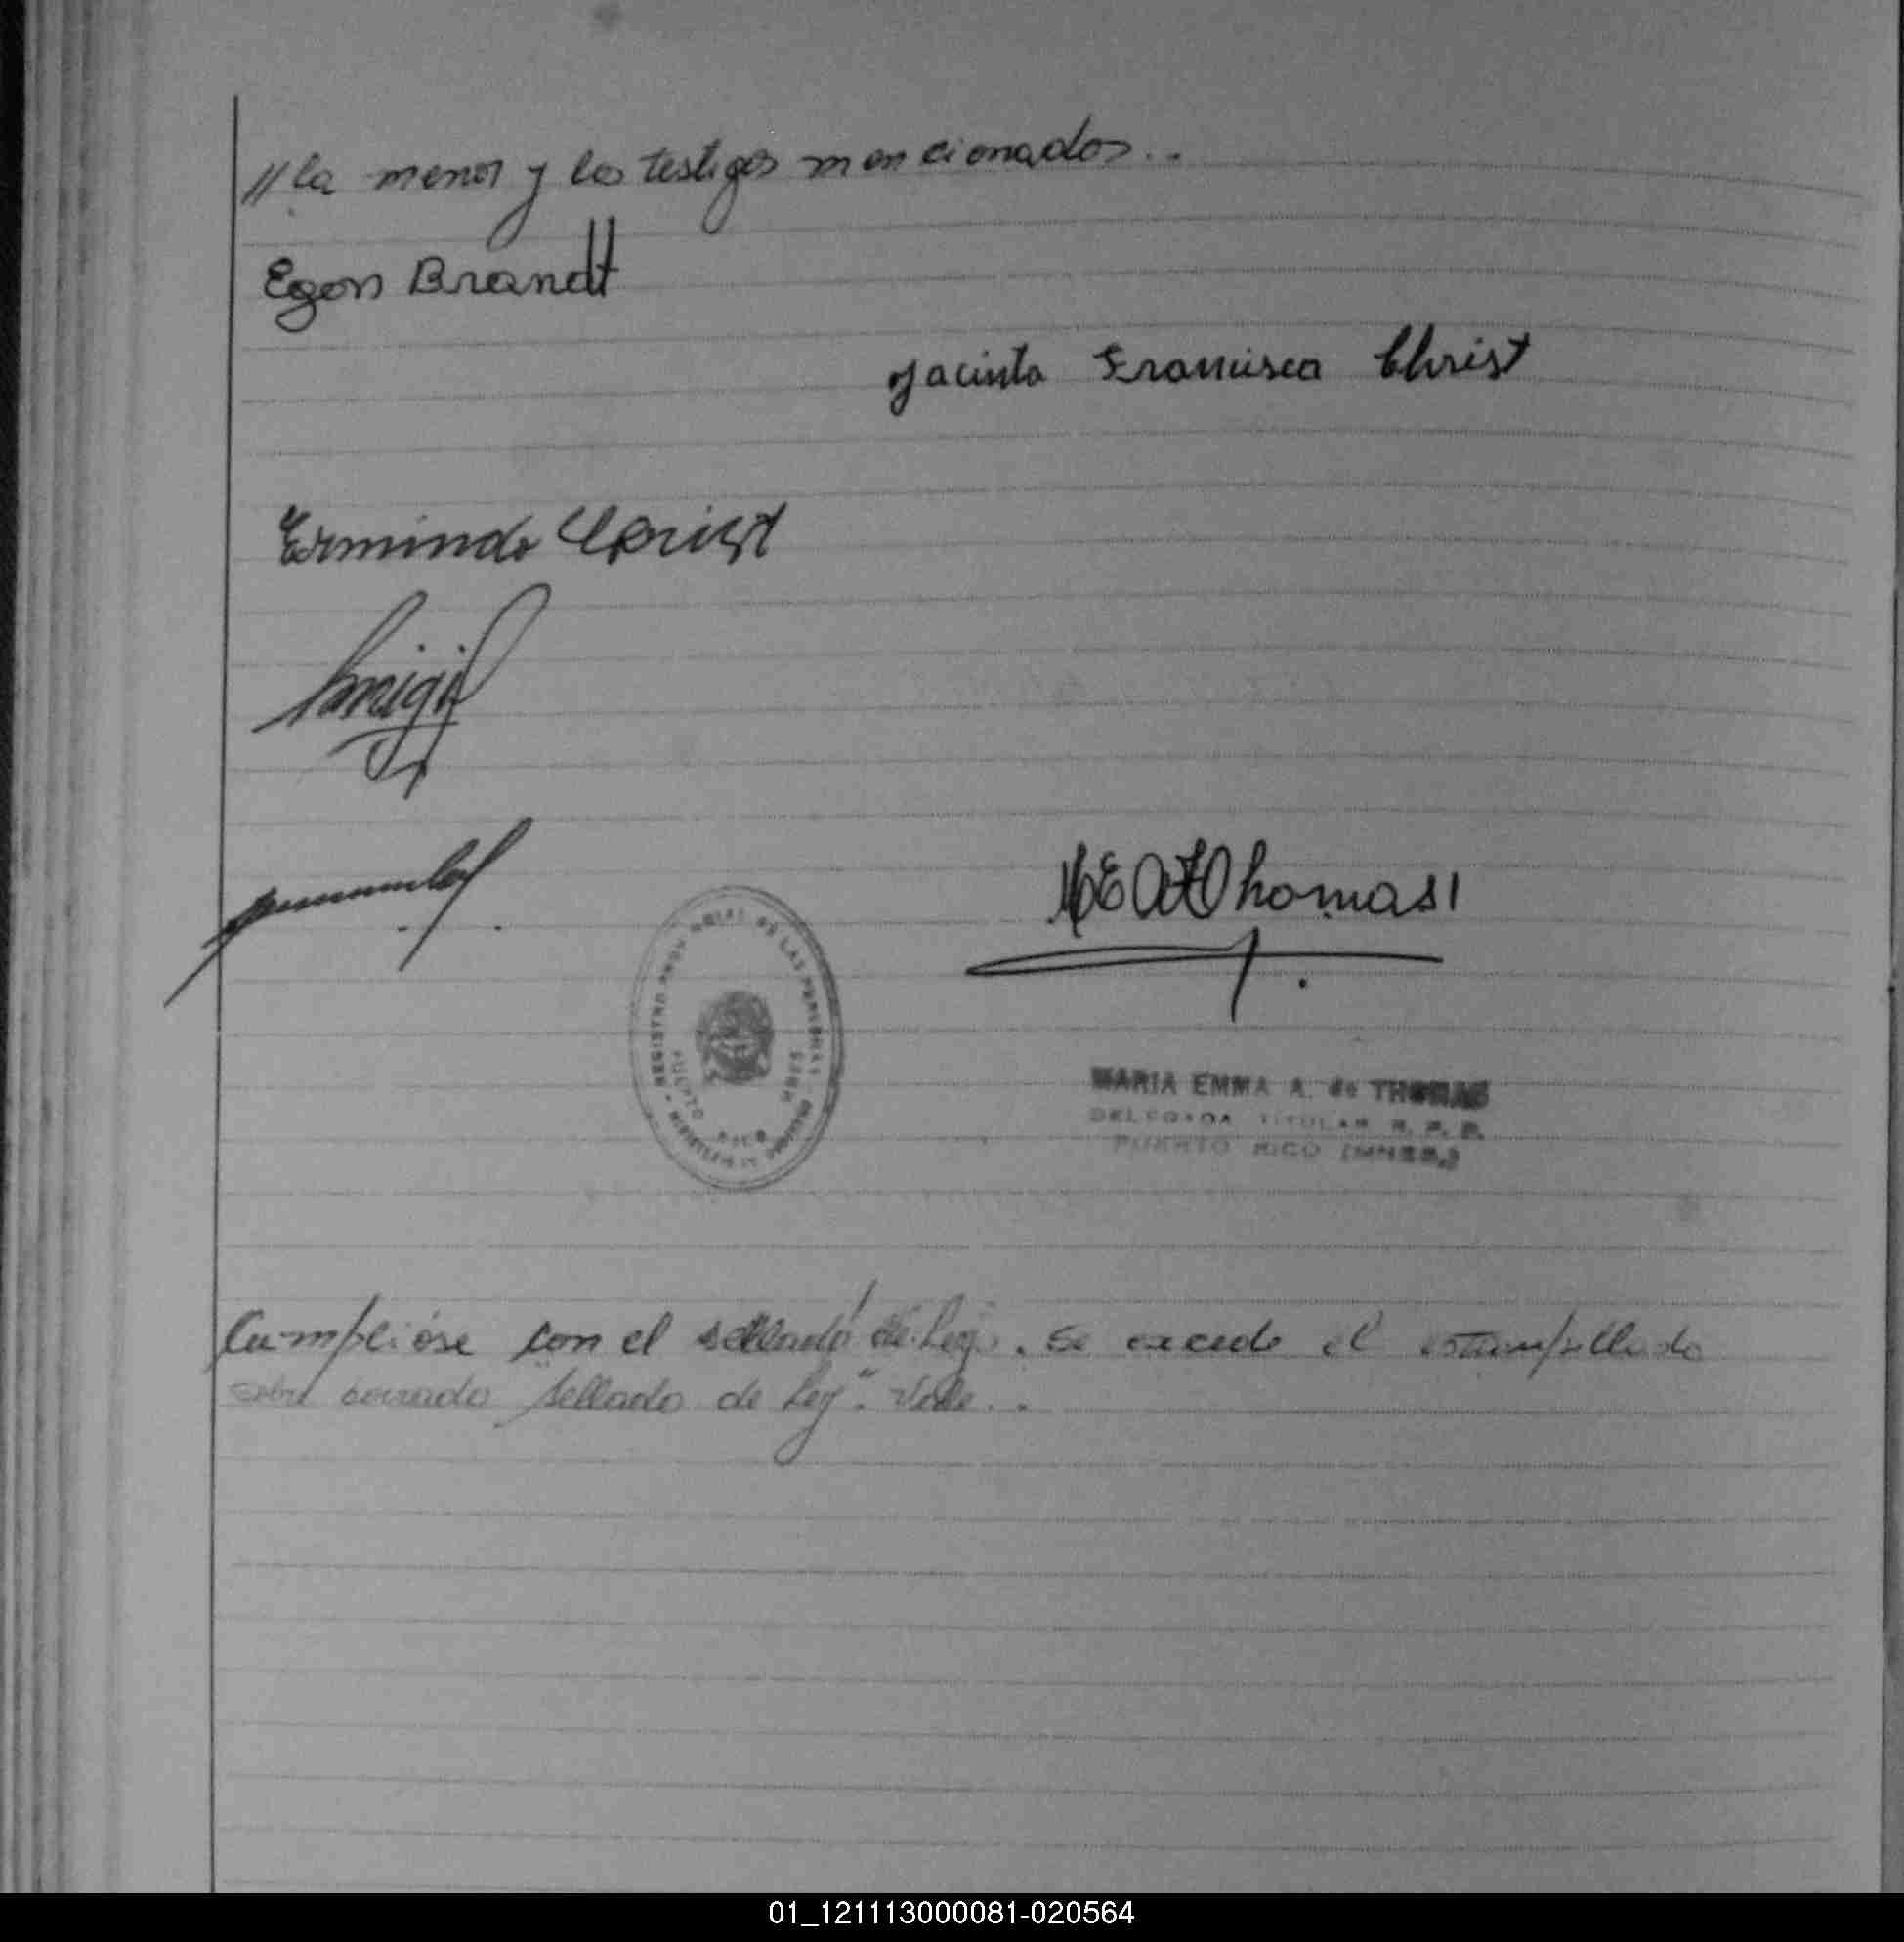 //la menor y los testigos mencionados..
Egon Brandt
Jacinta Francisca Christ
Ermindo Christ
MEAThomas
REGISTRO DE LAS PERSONAS
PUERTO RICO
MARIA EMMA A. de THOMAS
DELEGADA TITULAR R. P. P.
PUERTO RICO (MNES.)
Cumplióse con el sellado de Ley. Se excede el estampillado
sobre borrado "sellado de Ley". Vale..
01_121113000081-020564